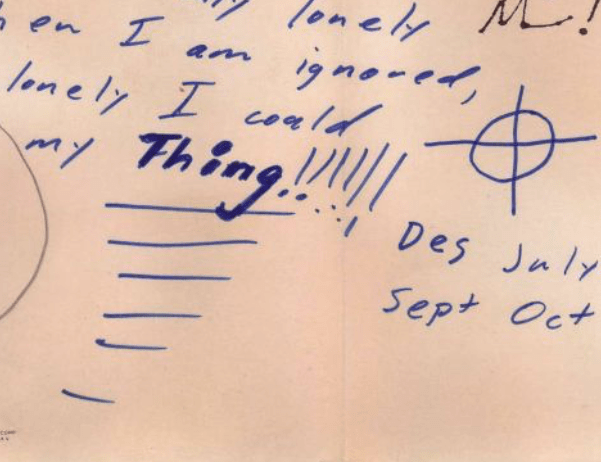 lonely M!
hen I am ignored,
lonely I could
my Thing..!!!!!!
Des July
Sept Oct